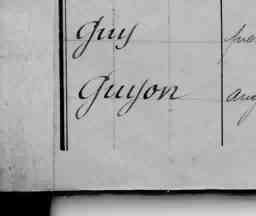 Guy
Guyon